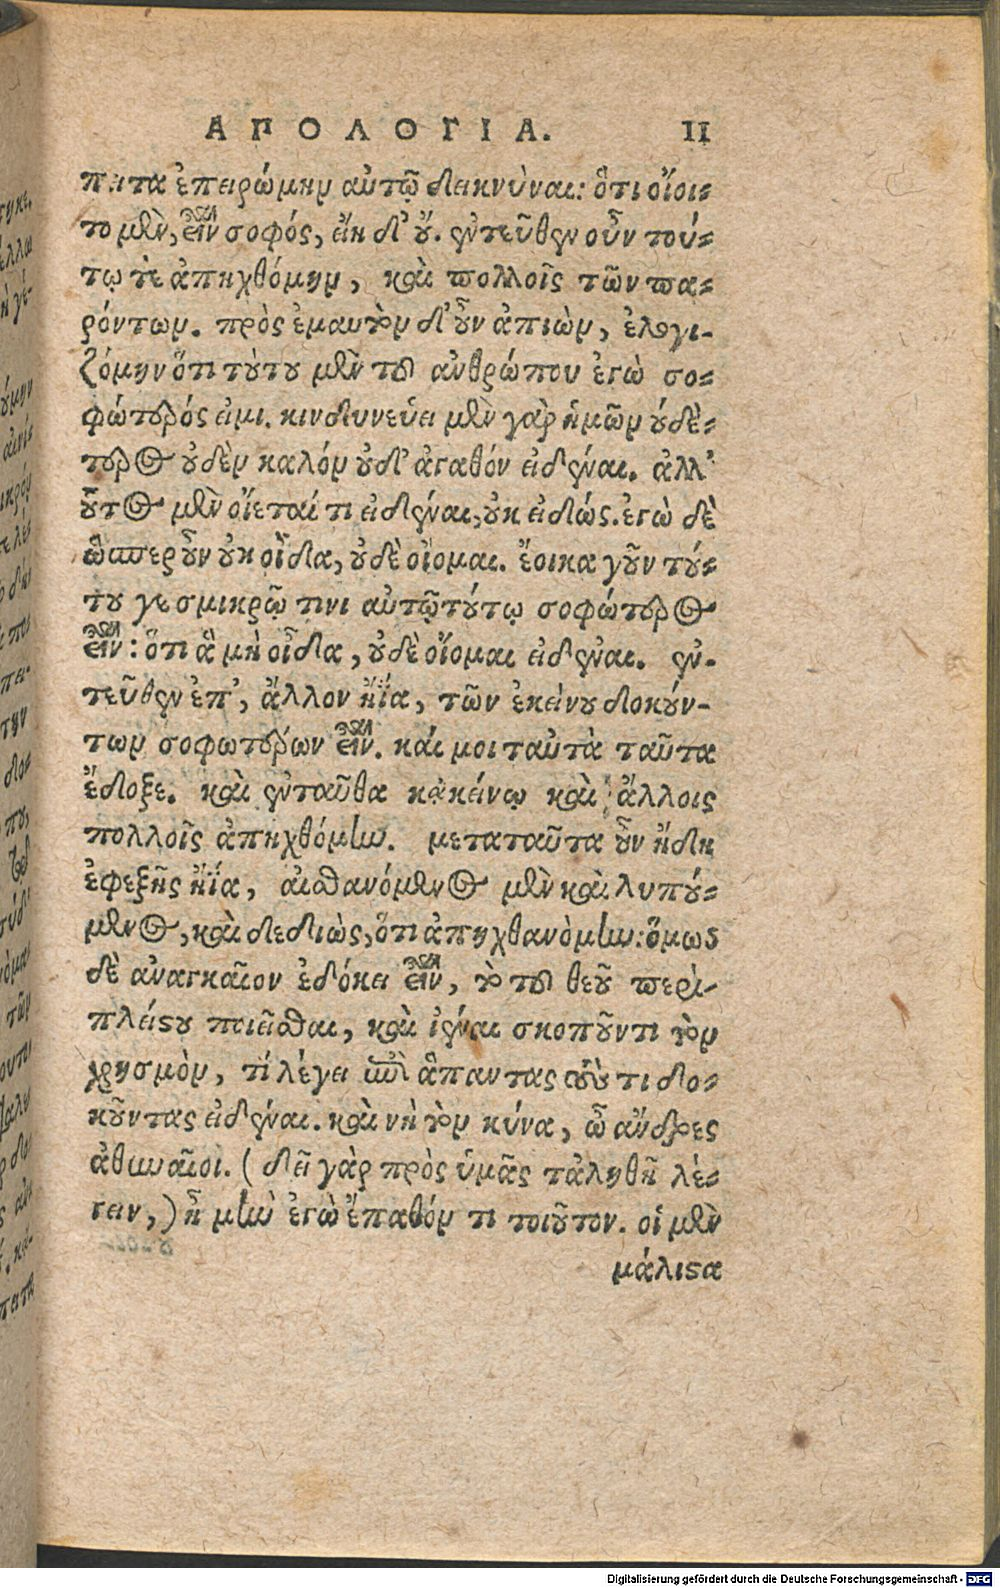 ΑΠΟΛΟΓΙΑ. 11
πειτα ἐπειρώμην αὐτῷ δεικνύναι: ὅτι οἴοι-
το μὲν, εἶναι σοφός, εἴη δ' οὔ. ἐντεῦθεν οὖν τού-
τῳ τε ἀπηχθόμην, καὶ πολλοῖς τῶν πα-
ρόντων. πρὸς ἐμαυτὸν δ' οὖν ἀπιὼν, ἐλογι-
ζόμην ὅτι τούτου μὲν τοῦ ἀνθρώπου ἐγὼ σο-
φώτερός εἰμι. κινδυνεύει μὲν γὰρ ἡμῶν οὐδέ-
τερος οὐδὲν καλόν οὐδ' ἀγαθόν εἰδέναι. ἀλλ'
οὗτος μὲν οἴεταί τι εἰδέναι, οὐκ εἰδώς. ἐγὼ δὲ
ὥσπερ οὖν οὐκ οἶδα, οὐδὲ οἴομαι. ἔοικα γοῦν τού-
του γε σμικρῷ τινι αὐτῷ τούτῳ σοφώτερος
εἶναι: ὅτι ἃ μὴ οἶδα, οὐδὲ οἴομαι εἰδέναι. ἐν-
τεῦθεν ἐπ', ἄλλον ᾔα, τῶν ἐκείνου δοκούν-
των σοφωτέρων εἶναι. καί μοι ταὐτὰ ταῦτα
ἔδοξε. καὶ ἐνταῦθα κἀκείνῳ καὶ ἄλλοις
πολλοῖς ἀπηχθόμην. μεταταῦτα οὖν ἤδη
ἐφεξῆς ᾔα, αἰσθανόμενος μὲν καὶ λυπού-
μενος, καὶ δεδιὼς, ὅτι ἀπηχθανόμην: ὅμως
δὲ ἀναγκαῖον ἐδόκει εἶναι, τὸ τοῦ θεοῦ περὶ
πλείστου ποιεῖσθαι, καὶ ἰέναι σκοποῦντι τὸν
χρησμὸν, τί λέγει ἐπὶ ἅπαντας τούς τι δο-
κοῦντας εἰδέναι. καὶ νὴ τὸν κύνα, ὦ ἄνδρες
ἀθηναῖοι. (δεῖ γὰρ πρὸς ὑμᾶς τἀληθῆ λέ-
γειν,) ἦ μὴν ἐγὼ ἔπαθόν τι τοιοῦτον. οἱ μὲν
μάλιστα
Digitalisierung gefördert durch die Deutsche Forschungsgemeinschaft - DFG